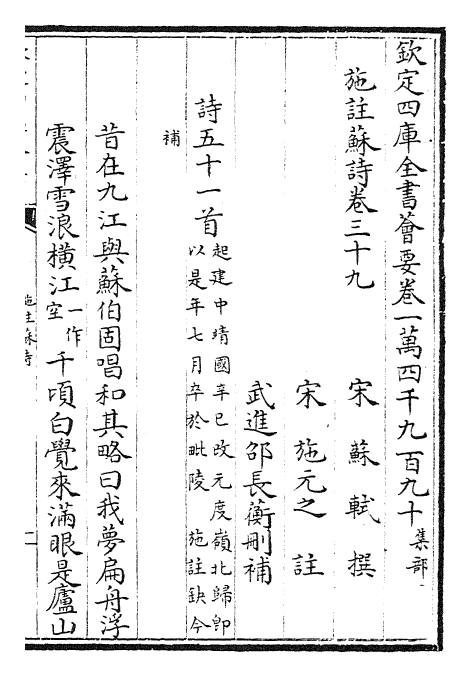 欽定四庫全書薈要卷一萬四千九百九十 集部
施註蘇詩卷三十九
宋 蘇軾 撰
宋 施元之 註
武進邵長蘅刪補
詩五十一首 起建中靖國辛巳改元度嶺北歸即
以是年七月卒於毗陵 施註缺今
補
昔在九江與蘇伯固唱和其略曰我夢扁舟浮
震澤雪浪橫江一作空千頃白覺來滿眼是廬山
施註蘇詩